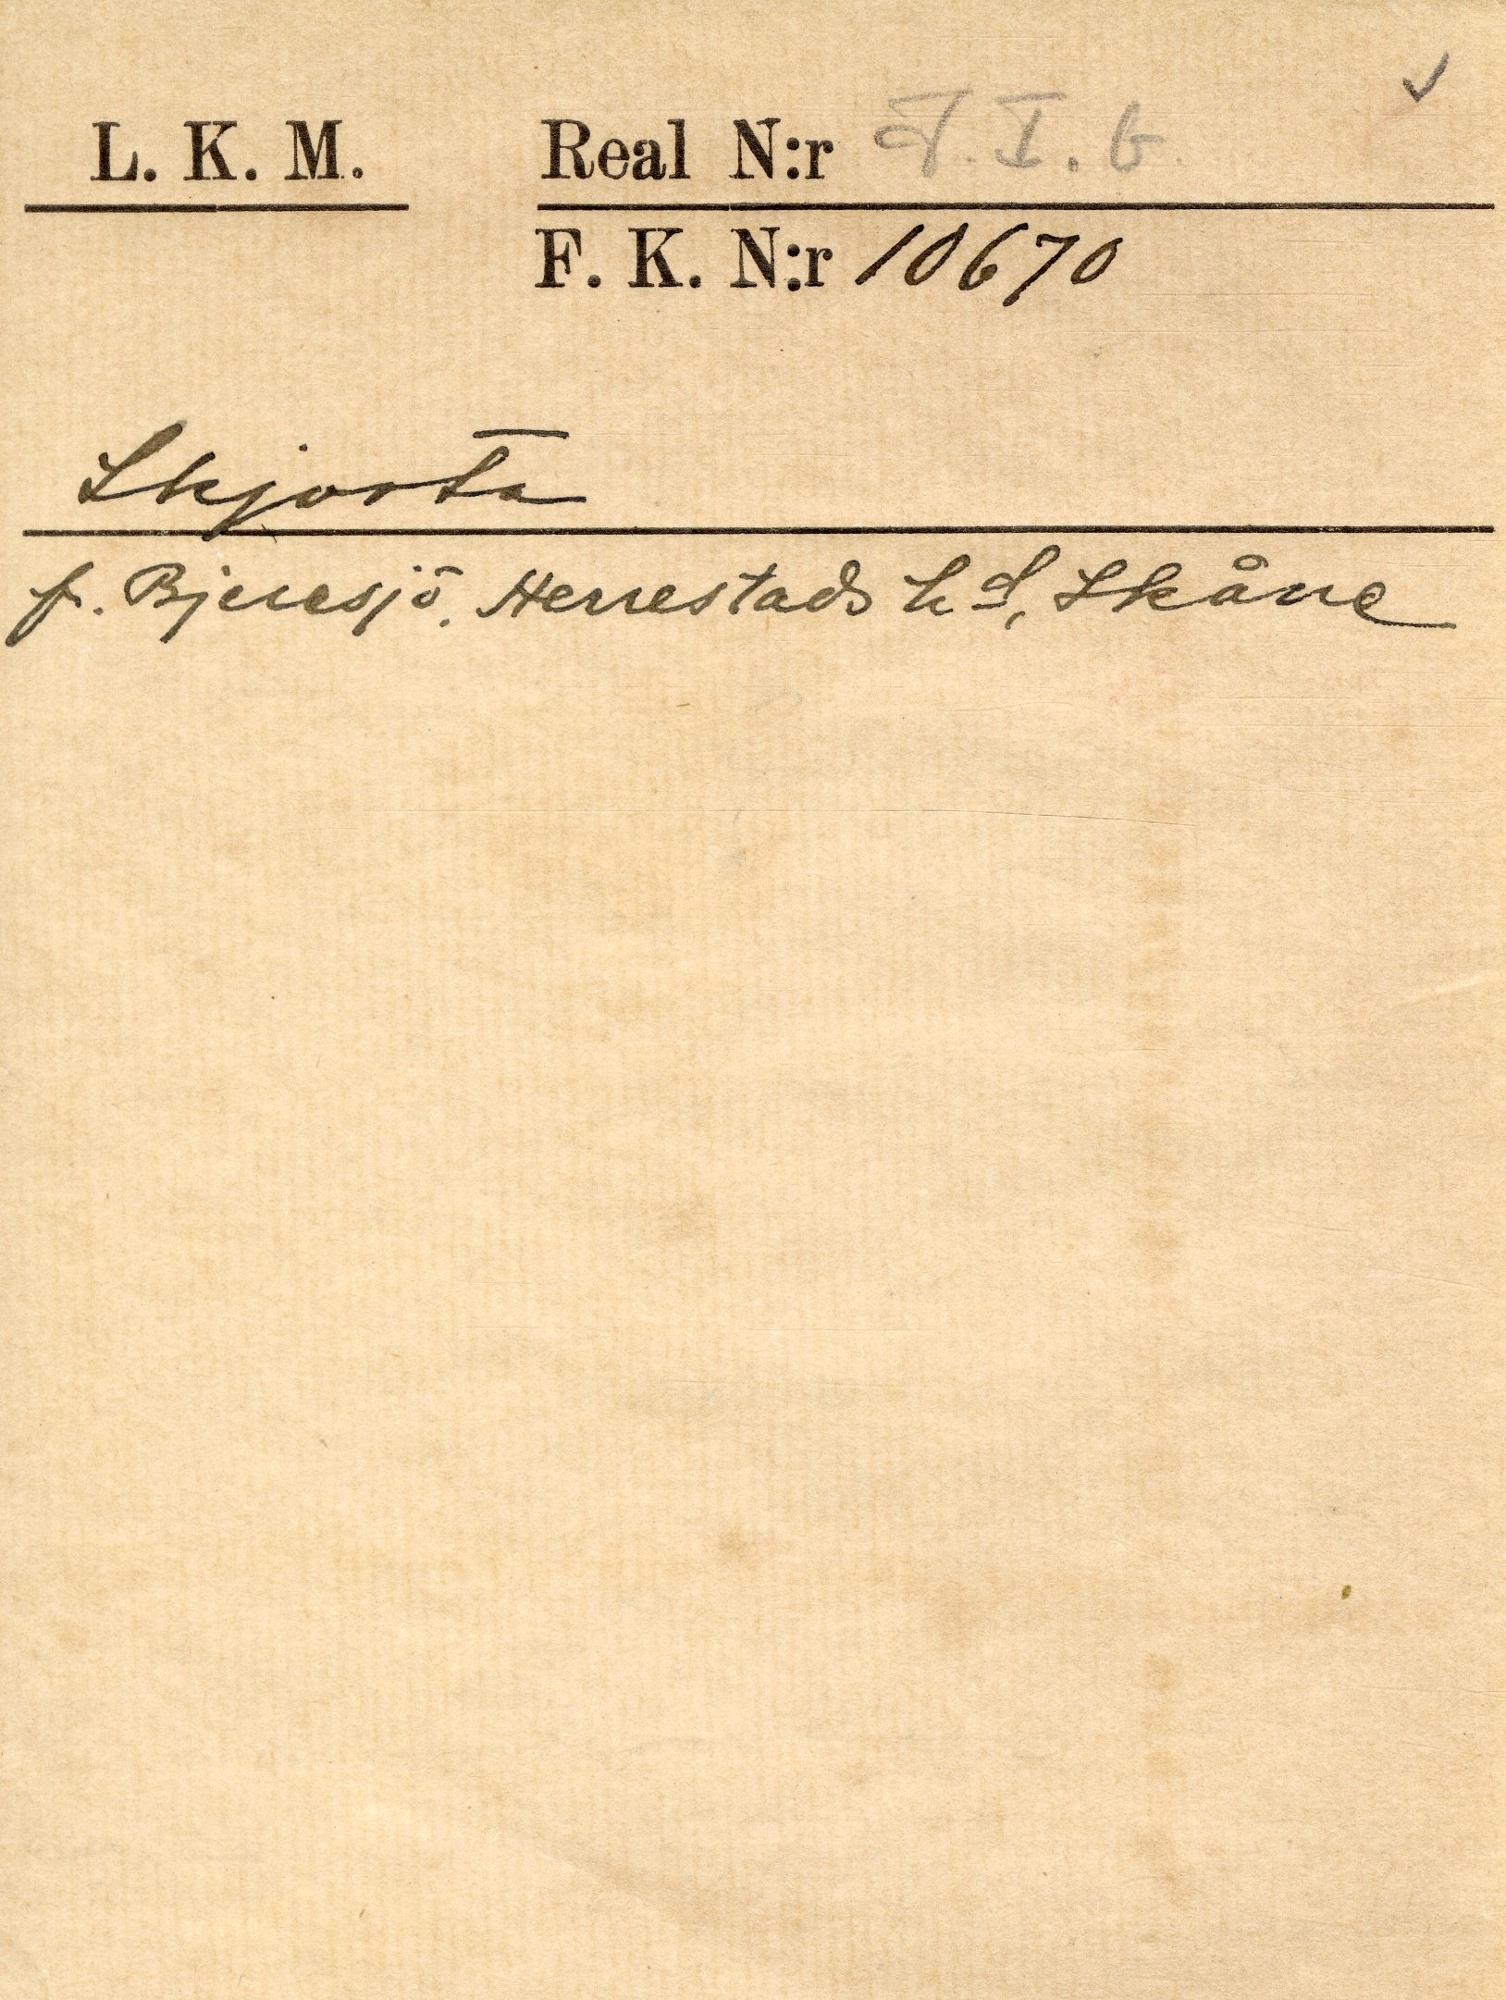 L. K. M. Real N:r J. I. b.
F. K. N:r 10670
Skjorta
fr. Bjeresjö, Herrestads hd, Skåne